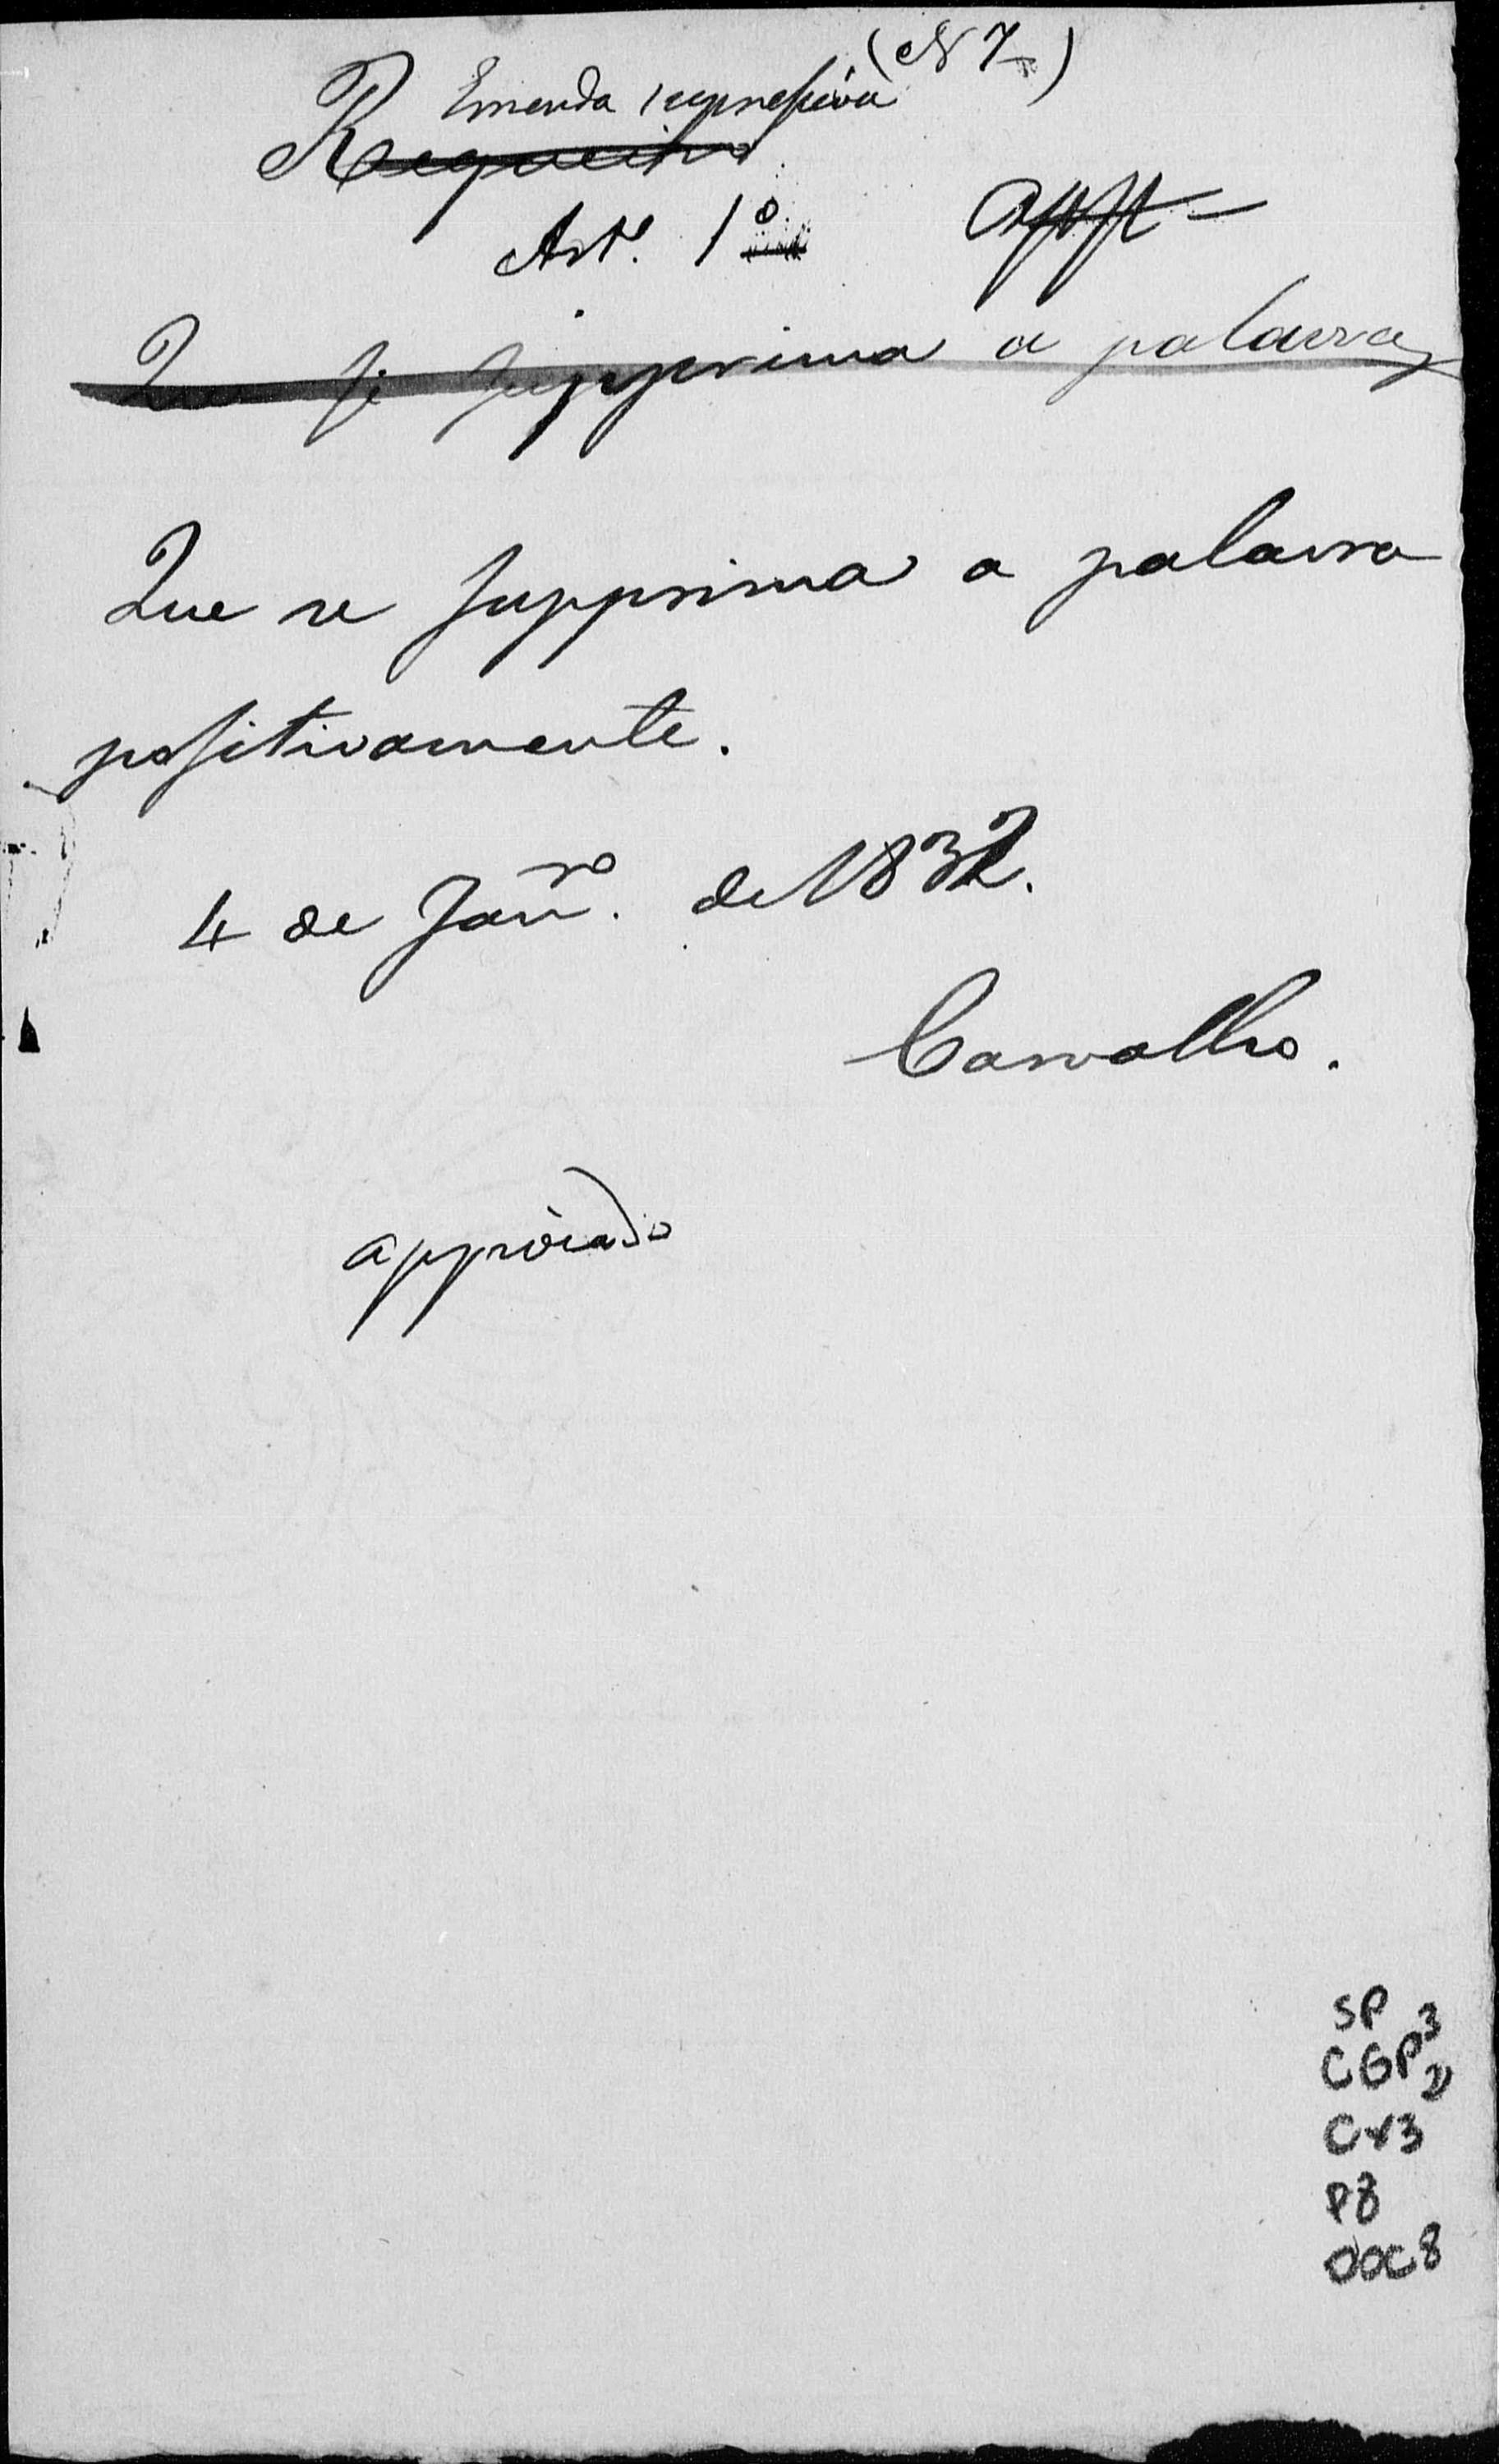 (N 7)
Emenda suppressiva
Requeiro
Artº. 1º Appr
Que se supprima a palavra
Que se supprima a palavra
positivamente.
4 de Janrº. de 1832.
Carvalho.
approvado
SP
CGP3
Cx3
P8
DOC8